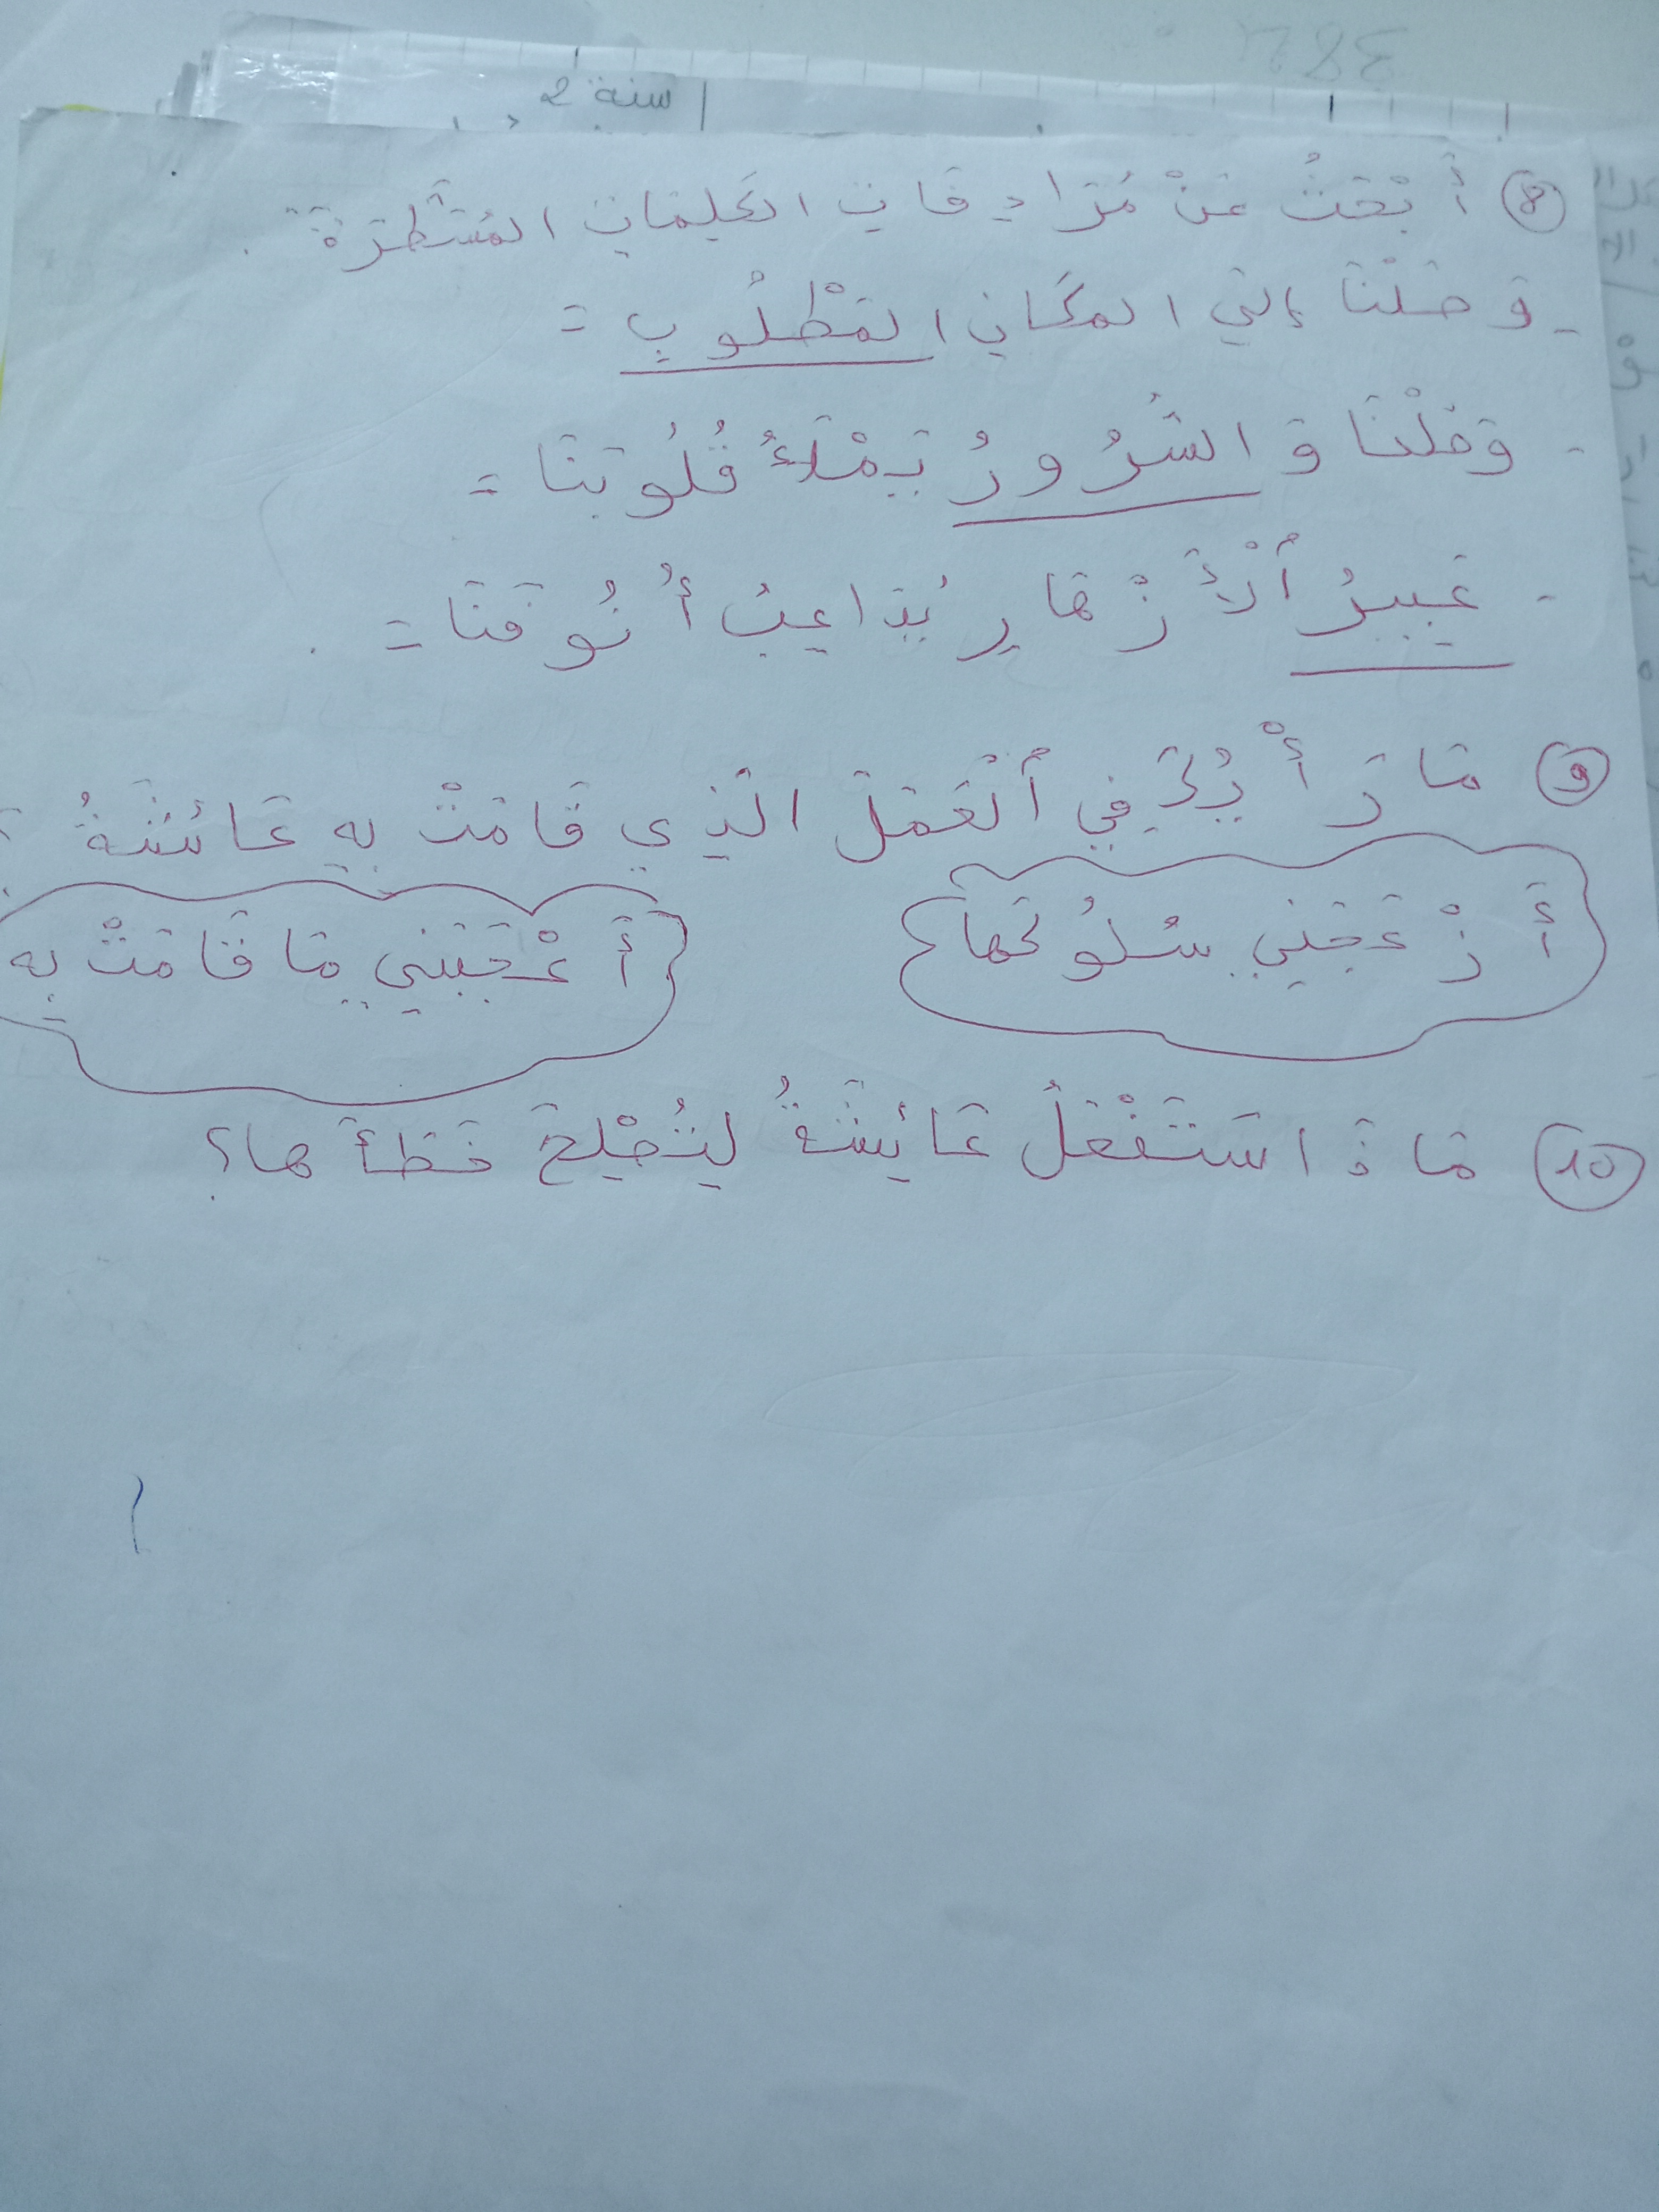 سنة 2
⑧ أَبْحَثُ عَنْ مُرَادِفَاتِ الكَلِمَاتِ المُسَطَّرَةِ .
- وَصَلْنَا إِلَى المكَانِ المَطْلُوبِ =
- وَصَلْنَا وَ السُّرُورُ يَمْلَأُ قُلُوبَنَا =
- عَبِيرُ أَلْأَزْهَارِ يُدَاعِبُ أُنُوفَنَا = .
⑨ مَا رَأْيُكَ فِي أَلْعَمَلِ الَّذِي قَامَتْ بِهِ عَائِشَةُ ؟
أَزْعَجَنِي سُلُوكَها
أَعْجَبَنِي مَا قَامَتْ بِه
⑩ مَاذَا سَتَفْعَلُ عَائِشَةُ لِتُصْلِحَ خَطَأَها؟